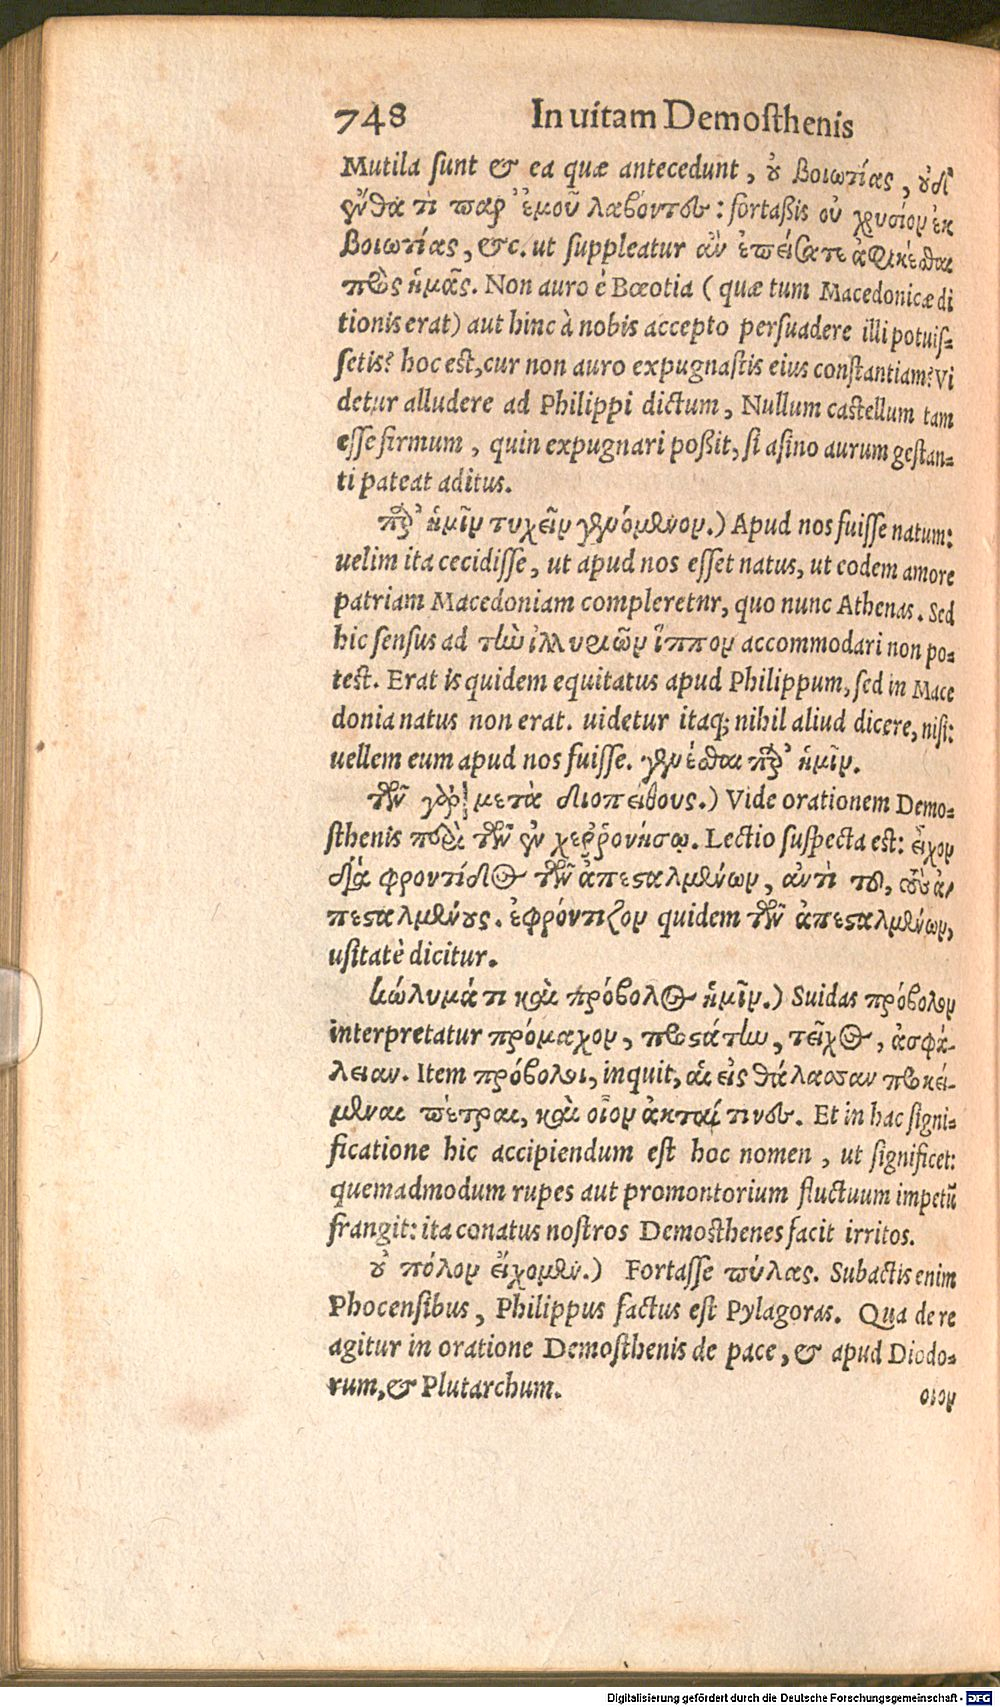 748 In uitam Demosthenis
Mutila sunt & ea quæ antecedunt, ȣ̓ Βοιωτίας, ȣ̓δ'
ἔνθα τὶ παρ' ἐμοῦ λαβοντος: fortaßis οὐ χρυσίον ἐκ
Βοιωτίας, &c. ut suppleatur ἂν ἐπείσατε ἀφικέσθαι
πρὸς ἡμᾶς. Non auro è Bœotia ( quæ tum Macedonicæ di
tionis erat) aut hinc à nobis accepto persuadere illi potuis=
setis? hoc est, cur non auro expugnastis eius constantiam? Vi
detur alludere ad Philippi dictum, Nullum castellum tam
esse firmum, quin expugnari poßit, si asino aurum gestan=
ti pateat aditus.
παρ' ἡμῖν τυχεῖν γενόμενον.) Apud nos fuisse natum:
uelim ita cecidisse, ut apud nos esset natus, ut eodem amore
patriam Macedoniam compleretnr, quo nunc Athenas. Sed
hic sensus ad τὴν ἰλλυριῶν ἵππον accommodari non po=
test. Erat is quidem equitatus apud Philippum, sed in Mace
donia natus non erat. uidetur itaq; nihil aliud dicere, nisi:
uellem eum apud nos fuisse. γενέσθαι παρ' ἡμῖν.
τῶν γὰρ μετὰ διοπείθους.) Vide orationem Demo=
sthenis περὶ τῶν ἐν χερρονήσῳ. Lectio suspecta est: εἶχον
διὰ φροντίδος τῶν ἀπεσταλμένων, ἀντὶ τοῦ, τοὺς ἀ-
πεσταλμένȣς. ἐφρόντιζον quidem τῶν ἀπεσταλμένων,
usitatè dicitur.
κώλυμά τι καὶ πρόβολος ἡμῖν.) Suidas πρόβολον
interpretatur πρόμαχον, προστάτην, τεῖχος, ἀσφά-
λειαν. Item πρόβολοι, inquit, αἱ εἰς θάλασσαν προκεί-
μεναι πέτραι, καὶ οἷον ἀκταί τινες. Et in hac signi=
ficatione hic accipiendum est hoc nomen, ut significet:
quemadmodum rupes aut promontorium fluctuum impetū
frangit: ita conatus nostros Demosthenes facit irritos.
ȣ̓ πόλον εἴχομεν.) Fortasse πύλας. Subactis enim
Phocensibus, Philippus factus est Pylagoras. Qua de re
agitur in oratione Demosthenis de pace, & apud Diodo=
rum, & Plutarchum.
Digitalisierung gefördert durch die Deutsche Forschungsgemeinschaft - DFG